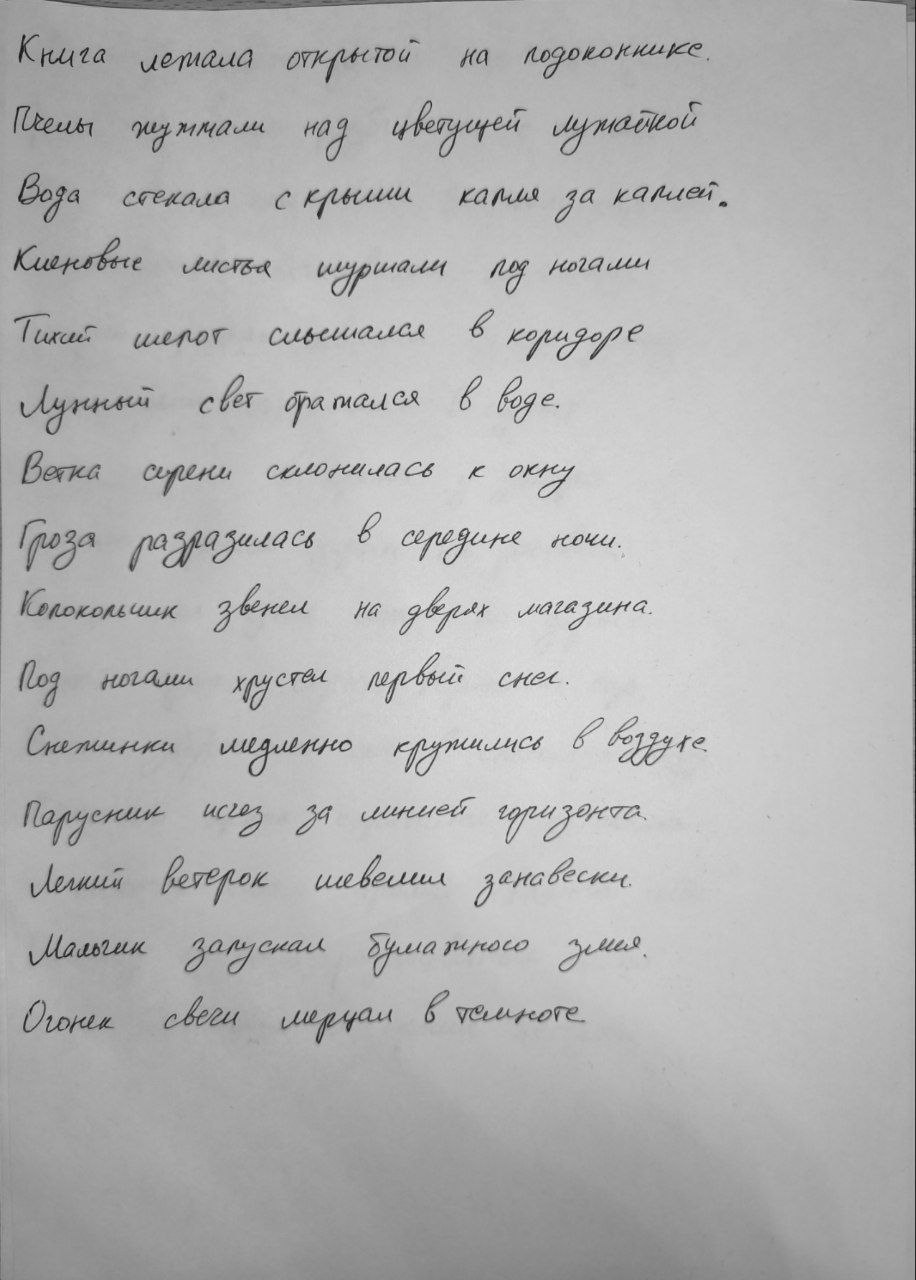 Книга лежала открытой на подоконнике.
Пчелы жужжали над цветущей лужайкой
Вода стекала с крыши капля за каплей.
Кленовые листья шуршали под ногами
Тихий шепот слышался в коридоре
Лунный свет отражался в воде.
Ветка сирени склонилась к окну
Гроза разразилась в середине ночи.
Колокольчик звенел на дверях магазина.
Под ногами хрустел первый снег.
Снежинки медленно кружились в воздухе.
Парусник исчез за линией горизонта.
Легкий ветерок шевелил занавески.
Мальчик запускал бумажного змея.
Огонек свечи мерцал в темноте